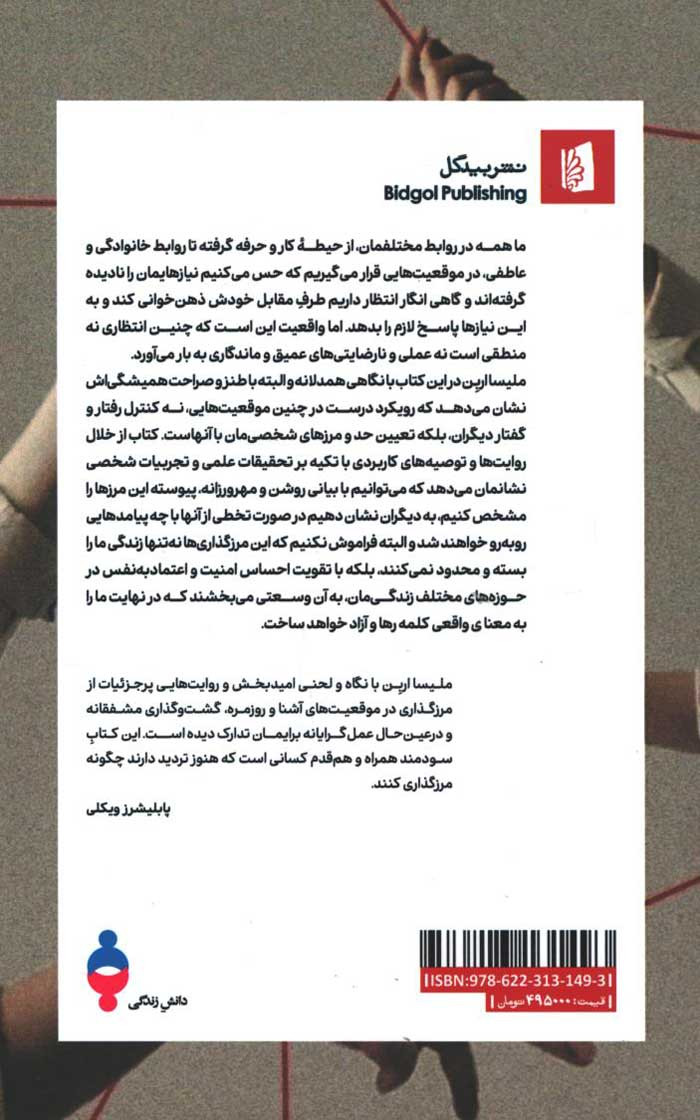 نشر بیدگل
Bidgol Publishing
ما همه در روابط مختلفمان، از حیطهٔ کار و حرفه گرفته تا روابط خانوادگی و
عاطفی، در موقعیت‌هایی قرار می‌گیریم که حس می‌کنیم نیازهایمان را نادیده
گرفته‌اند و گاهی انگار انتظار داریم طرفِ مقابل خودش ذهن‌خوانی کند و به
این نیازها پاسخ لازم را بدهد. اما واقعیت این است که چنین انتظاری نه
منطقی است نه عملی و نارضایتی‌های عمیق و ماندگاری به بار می‌آورد.
ملیسا اربن در این کتاب با نگاهی همدلانه و البته با طنز و صراحت همیشگی‌اش
نشان می‌دهد که رویکرد درست در چنین موقعیت‌هایی، نه کنترل رفتار و
گفتار دیگران، بلکه تعیین حد و مرزهای شخصی‌مان با آنهاست. کتاب از خلال
روایت‌ها و توصیه‌های کاربردی با تکیه بر تحقیقات علمی و تجربیات شخصی
نشانمان می‌دهد که می‌توانیم با بیانی روشن و مهرورزانه، پیوسته این مرزها را
مشخص کنیم، به دیگران نشان دهیم در صورت تخطی از آنها با چه پیامدهایی
روبه‌رو خواهند شد و البته فراموش نکنیم که این مرزگذاری‌ها نه‌تنها زندگی ما را
بسته و محدود نمی‌کنند، بلکه با تقویت احساس امنیت و اعتمادبه‌نفس در
حوزه‌های مختلف زندگی‌مان، به آن وسعتی می‌بخشند که در نهایت ما را
به معنای واقعی کلمه رها و آزاد خواهد ساخت.
ملیسا اربن با نگاه و لحنی امیدبخش و روایت‌هایی پرجزئیات از
مرزگذاری در موقعیت‌های آشنا و روزمره، گشت‌وگذاری مشفقانه
و درعین‌حال عمل‌گرایانه برایمان تدارک دیده است. این کتابِ
سودمند همراه و هم‌قدم کسانی است که هنوز تردید دارند چگونه
مرزگذاری کنند.
پابلیشرز ویکلی
ISBN:978-622-313-149-3
قیمت: ۴۹۵۰۰۰ تومان
دانشِ زندگی